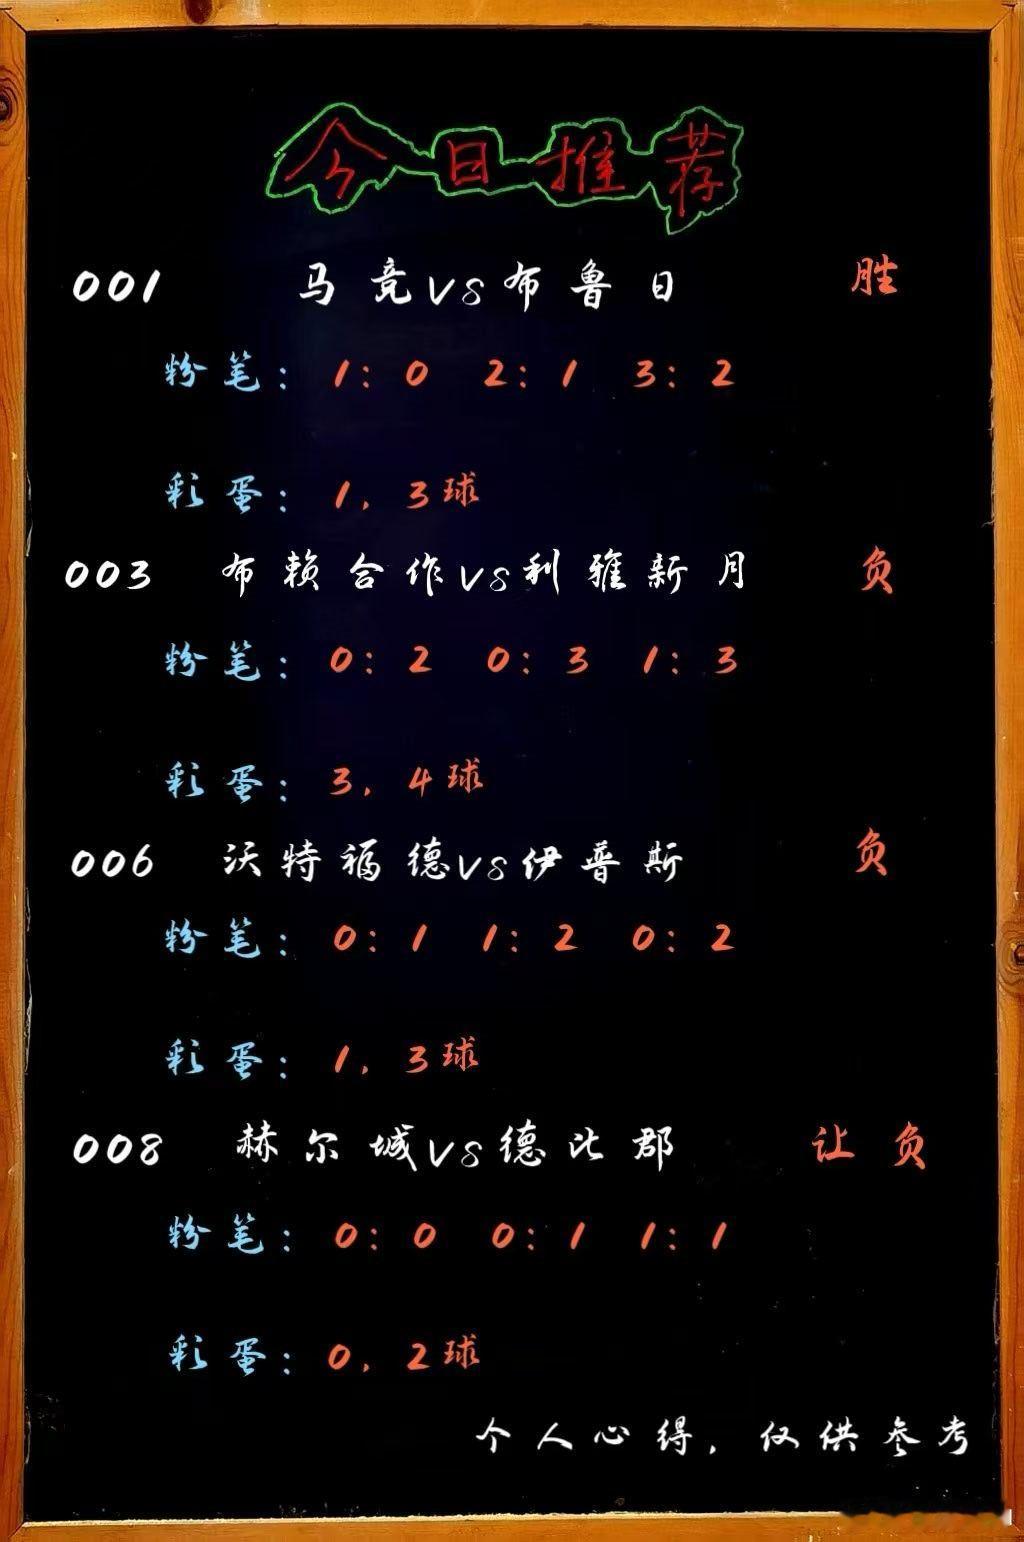 今日推荐
001 马竞vs布鲁日 胜
粉笔: 1:0 2:1 3:2
彩蛋: 1, 3球
003 布赖合作vs利雅新月 负
粉笔: 0:2 0:3 1:3
彩蛋: 3, 4球
006 沃特福德vs伊普斯 负
粉笔: 0:1 1:2 0:2
彩蛋: 1, 3球
008 赫尔城vs德比郡 让负
粉笔: 0:0 0:1 1:1
彩蛋: 0, 2球
个人心得, 仅供参考